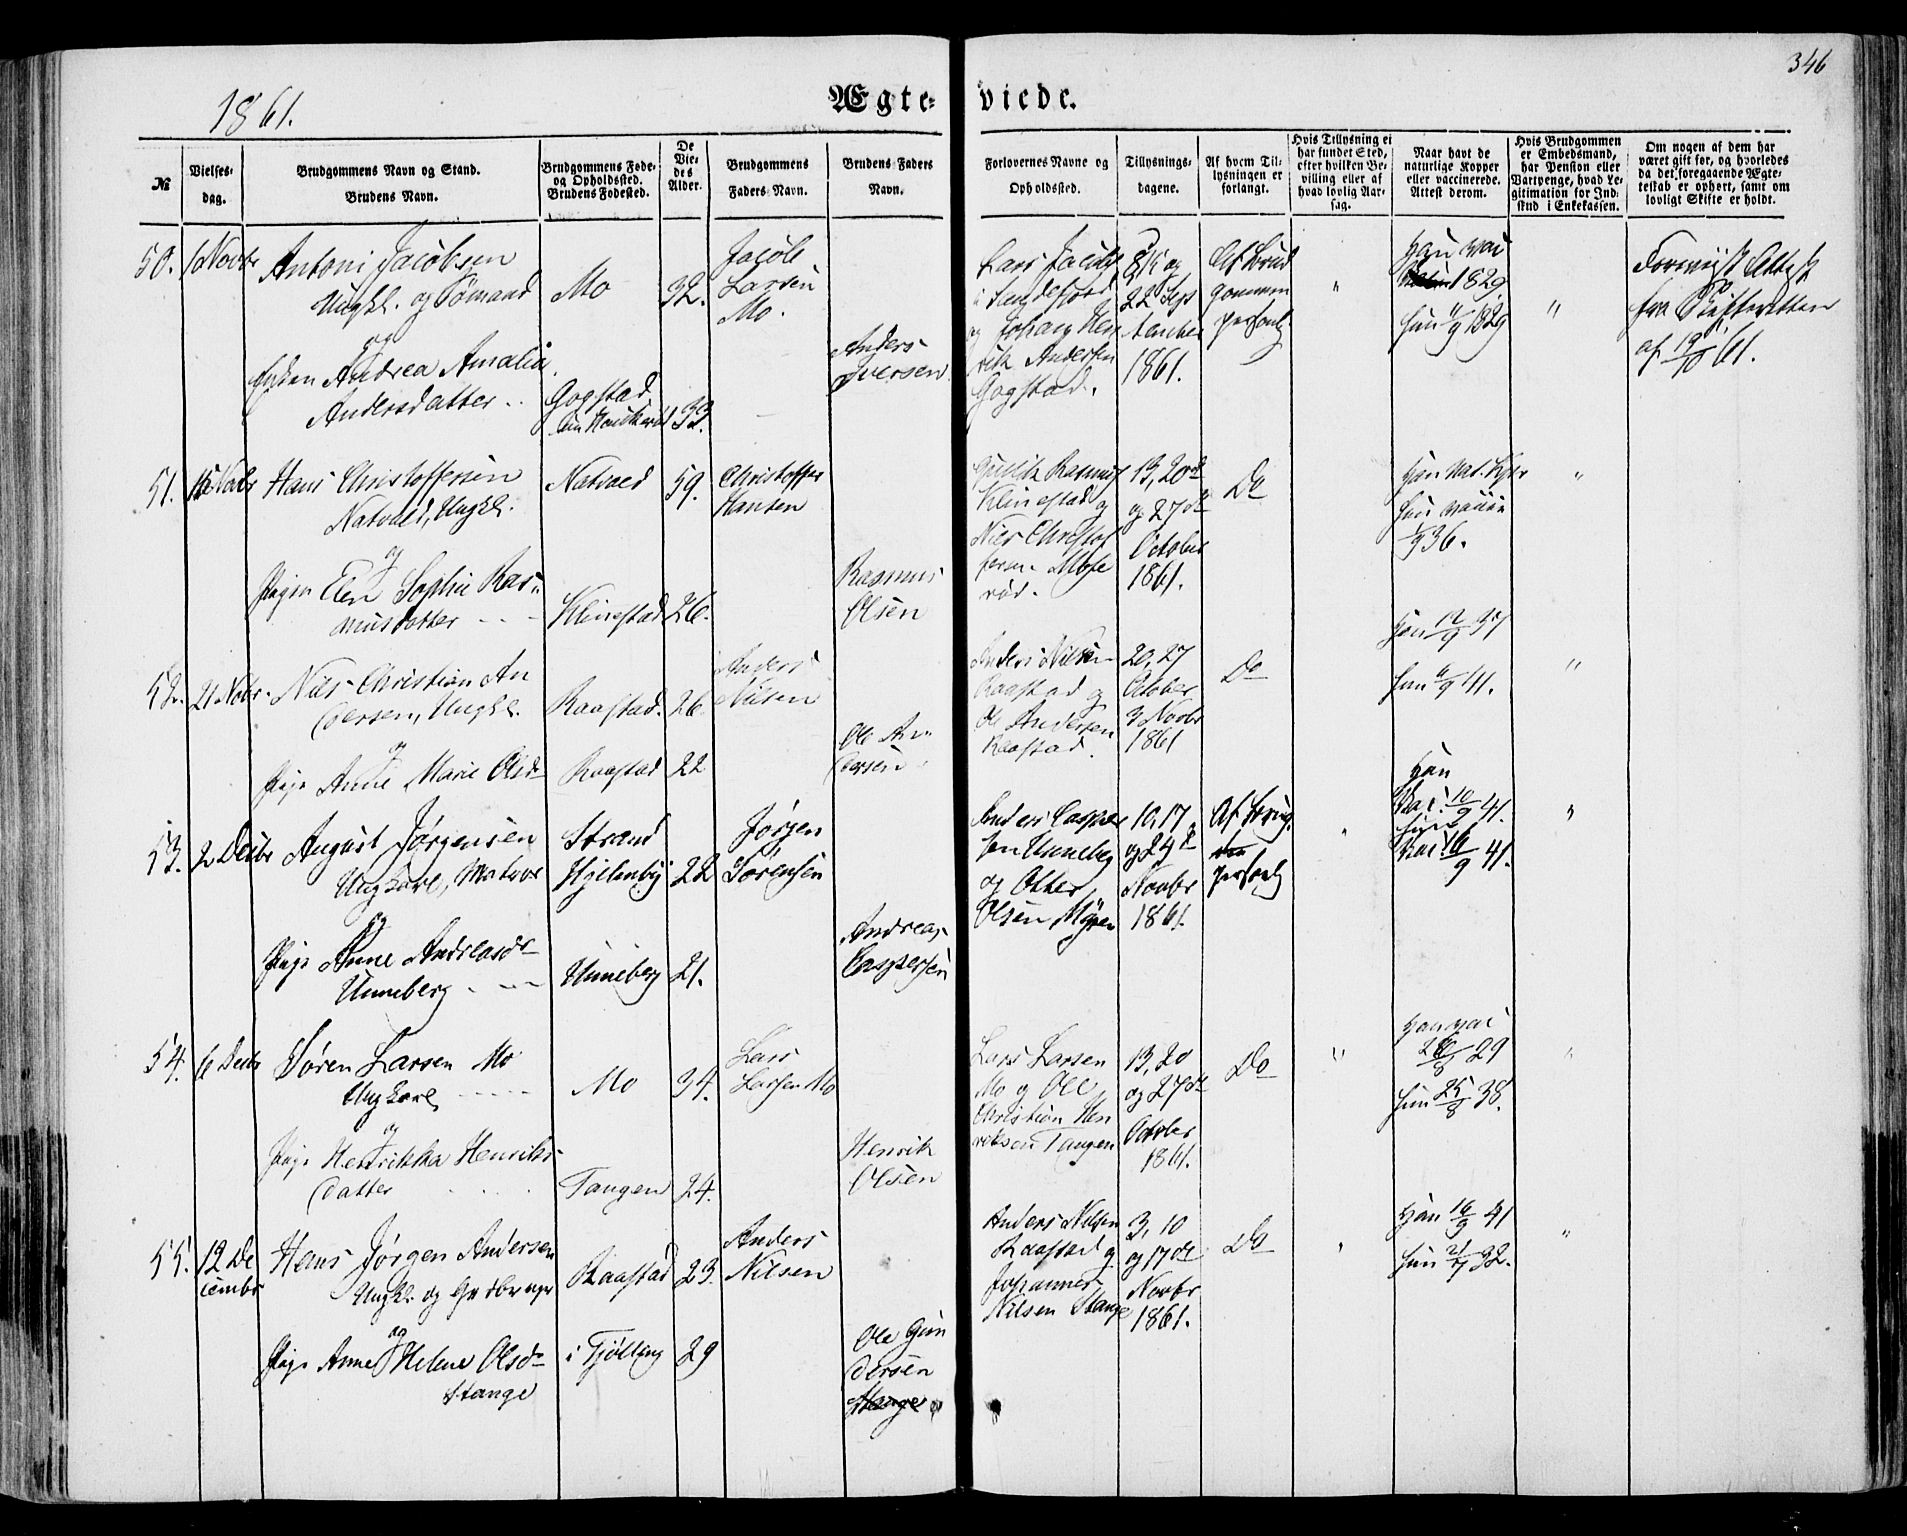 346
1861.
Ægte-
viede.
№
Vielses-
dag.
Brudgommens Navn og Stand.
Brudens Navn.
Brudgommens Føde-
og Opholdssted.
Brudens Fødested.
De
Vie-
des
Alder.
Brudgommens
Faders Navn.
Brudens Faders
Navn.
Forlovernes Navne og
Opholdssted.
Tillysnings-
dagene.
Af hvem Til-
lysningen er
forlangt.
Hvis Tillysning ei
har fundet Sted,
efter hvilken Be-
villing eller af
hvad lovlig Aar-
sag.
Naar havt de
naturlige Kopper
eller vaccinerede.
Attest derom.
Hvis Brudgommen
er Embedsmand,
har Pension eller
Vartpenge, hvad Le-
gitimation for Ind-
skud i Enkekassen.
Om nogen af dem har
været gift før, og hvorledes
da det foregaaende Ægte-
teskab er ophørt, samt om
lovligt Skifte er holdt.
50.
1 Novbr
Antoni Jacobsen
Ungkl. og Sømand
og
Enken Andrea Amalia
Andersdatter
Mo
Gogstad
32.
33.
Jacob
Larsen
Mo.
Anders
Iversen
Lars Jacobs
i Sandefjord
og Johan Hen
rik Andersen
Gogstad.
8, 15 og
22 Sep
tember
1861.
Af Brud
gommen
personl.
"
Han vac
1829
Hun 1829
"
Foreviist Attest
fra Skifteretten
af 61.
51.
15 Novbr
Hans Christoffersen
Natvald, Ungkl.
og
Pigen Elen Sophie Ras-
musdatter
Natvald
Klinestad
59.
26.
Christoffer
Hansen
Rasmus
Olsen
Rasmus
Klinestad og
Nils Christof
fersen Mose
rød.
13, 20de
og 27de
October
1861.
Do
Han nat. Kopr
Hun vacc
36.
"
52.
21 Nobr.
Nils Christian An
dersen, Ungkl.
og
Pige Anne Marie Olsd
Raastad.
Raastad
26.
22
Anders
Nilsen
Ole An
dersen
Anders Nilsen
Raastad og
Ole Andersen
Raastad.
20, 27
October
3 Novbr
1861
Do
Han 12/9 37
Hun 6/9 41.
"
53.
2 Decbr
August Jørgensen
Ungkarl, Matros
og
Pige Anne Andreasdr
Unneberg
Strand
Hjelmby
Unneberg
22
21.
Jørgen
Sørensen
Andreas
Caspersen
Anders Casper
sen Unneberg
og Otter
Olsen Myren
10, 17
og 24d
Novbr
1861.
Af Brug.
personl
"
Han
Vac. 10/9 41.
Hun
Vac. 16/9 41.
"
54.
6 Decbr
Søren Larsen Mo
Ungkarl
og
Pige Henrikka Henriks-
datter
Mo
Tangen
34.
24.
Lars
Larsen Mo
Henrik
Olsen
Lars Larsen
Mo og Ole
Christian Hen
riksen Tangen
13, 20
og 27de
October
1861.
Do
"
Han vac
29
Hun 25/8 38.
"
55.
12 De
cembr
Hans Jørgen Andersen
Ungkl. og Grdbruger
og
Pige Anne Helene Olsdr
Stange
Raastad
i Tjølling
23.
29
Anders
Nilsen
Ole Gun
dersen
Stange
Anders Nilsen
Raastad og
Johannes
Nilsen Stange
3, 10
og 17de
Novbr
1861.
Do
"
Han 16/9 41
Hun 32.
"